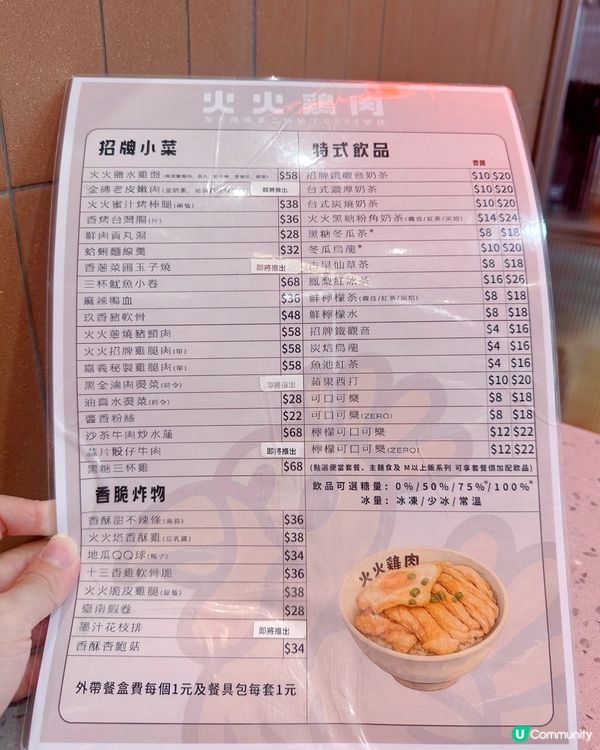 火火鷄肉
招牌小菜
火火鹽水雞盤 $58
金磚老皮嫩肉 即將推出
火火蜜汁烤棒腿(兩隻) $38
香烤台灣腸(片) $36
鮮肉貢丸湯 $28
蛤蜊麵線羹 $32
香蔥菜圃玉子燒 即將推出
三杯魷魚小卷 $68
麻辣鴨血 $36
玖香豬軟骨 $48
火火蔥燒豬頸肉 $58
火火招牌雞腿肉(單) $58
嘉義秘製雞腿肉(單) $58
黑金滷肉燙菜(時令) 即將推出
油膏水燙菜(時令) $28
醬香粉絲 $22
沙茶牛肉炒水蓮 $68
蒜片骰仔牛肉 即將推出
黑糖三杯雞 $68
香脆炸物
香酥甜不辣條(海苔) $36
火火塔香酥雞(豆乳醬) $38
地瓜QQ球(梅子) $34
十三香雞軟骨脆 $36
火火脆皮雞腿(原隻) $38
臺南蝦卷 $28
墨汁花枝排 即將推出
香酥杏鮑菇 $34
外帶餐盒費每個1元及餐具包每套1元
特式飲品
套餐
招牌鐵觀音奶茶 $10 $20
台式濃厚奶茶 $10 $20
台式炭燒奶茶 $10 $20
火火黑糖粉角奶茶(觀音/紅茶/炭焙) $14 $24
黑糖冬瓜茶* $8 $18
冬瓜烏龍* $10 $20
古早仙草茶 $8 $18
鳳梨紅冰茶 $16 $26
鮮檸檬茶(觀音/紅茶/炭焙) $8 $18
鮮檸檬水 $8 $18
招牌鐵觀音 $4 $16
炭焙烏龍 $4 $16
魚池紅茶 $4 $16
蘋果西打 $10 $20
可口可樂 $8 $18
可口可樂(ZERO) $8 $18
檸檬可口可樂 $12 $22
檸檬可口可樂(ZERO) $12 $22
(點選便當套餐、主麵食及 M以上飯系列 可享套餐價加配飲品)
飲品可選糖量：0%/50%/75%*/100%*
冰量：冰凍/少冰/常溫
火火雞肉
U Community